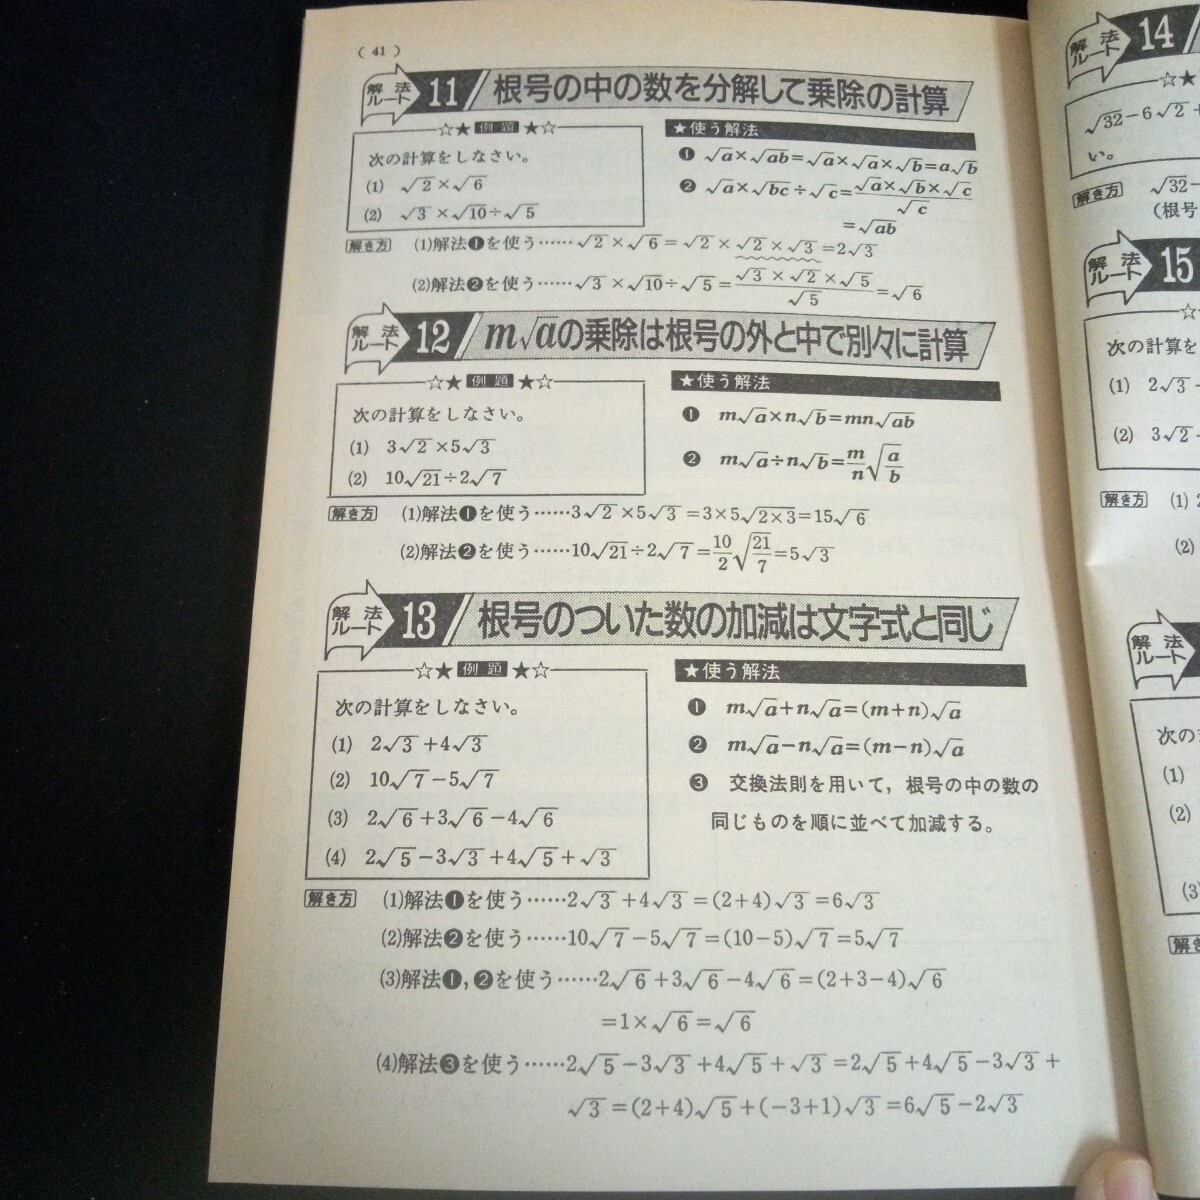 ( 41 )
解法ルート 11 根号の中の数を分解して乗除の計算
☆★ 例題 ★☆
次の計算をしなさい。
(1) √2×√6
(2) √3×√10÷√5
★使う解法
❶ √a×√ab=√a×√a×√b=a√b
❷ √a×√bc÷√c=(√a×√b×√c)/√c
=√ab
解き方 (1)解法❶を使う……√2×√6=√2×√2×√3=2√3
(2)解法❷を使う……√3×√10÷√5=(√3×√2×√5)/√5=√6
解法ルート 12 m√aの乗除は根号の外と中で別々に計算
☆★ 例題 ★☆
次の計算をしなさい。
(1) 3√2×5√3
(2) 10√21÷2√7
★使う解法
❶ m√a×n√b=mn√ab
❷ m√a÷n√b=m/n√(a/b)
解き方 (1)解法❶を使う……3√2×5√3=3×5√(2×3)=15√6
(2)解法❷を使う……10√21÷2√7=10/2√(21/7)=5√3
解法ルート 13 根号のついた数の加減は文字式と同じ
☆★ 例題 ★☆
次の計算をしなさい。
(1) 2√3+4√3
(2) 10√7-5√7
(3) 2√6+3√6-4√6
(4) 2√5-3√3+4√5+√3
★使う解法
❶ m√a+n√a=(m+n)√a
❷ m√a-n√a=(m-n)√a
❸ 交換法則を用いて,根号の中の数の
同じものを順に並べて加減する。
解き方 (1)解法❶を使う……2√3+4√3=(2+4)√3=6√3
(2)解法❷を使う……10√7-5√7=(10-5)√7=5√7
(3)解法❶,❷を使う……2√6+3√6-4√6=(2+3-4)√6
=1×√6=√6
(4)解法❸を使う……2√5-3√3+4√5+√3=2√5+4√5-3√3+
√3=(2+4)√5+(-3+1)√3=6√5-2√3
解法ルート 14
☆★
√32-6√2+
い。
解き方 √32-
(根号
解法ルート 15
☆
次の計算を
(1) 2√3-
(2) 3√2-
解き方 (1) 2
(2)
解法ルート
次の
(1)
(2)
(3)
解き